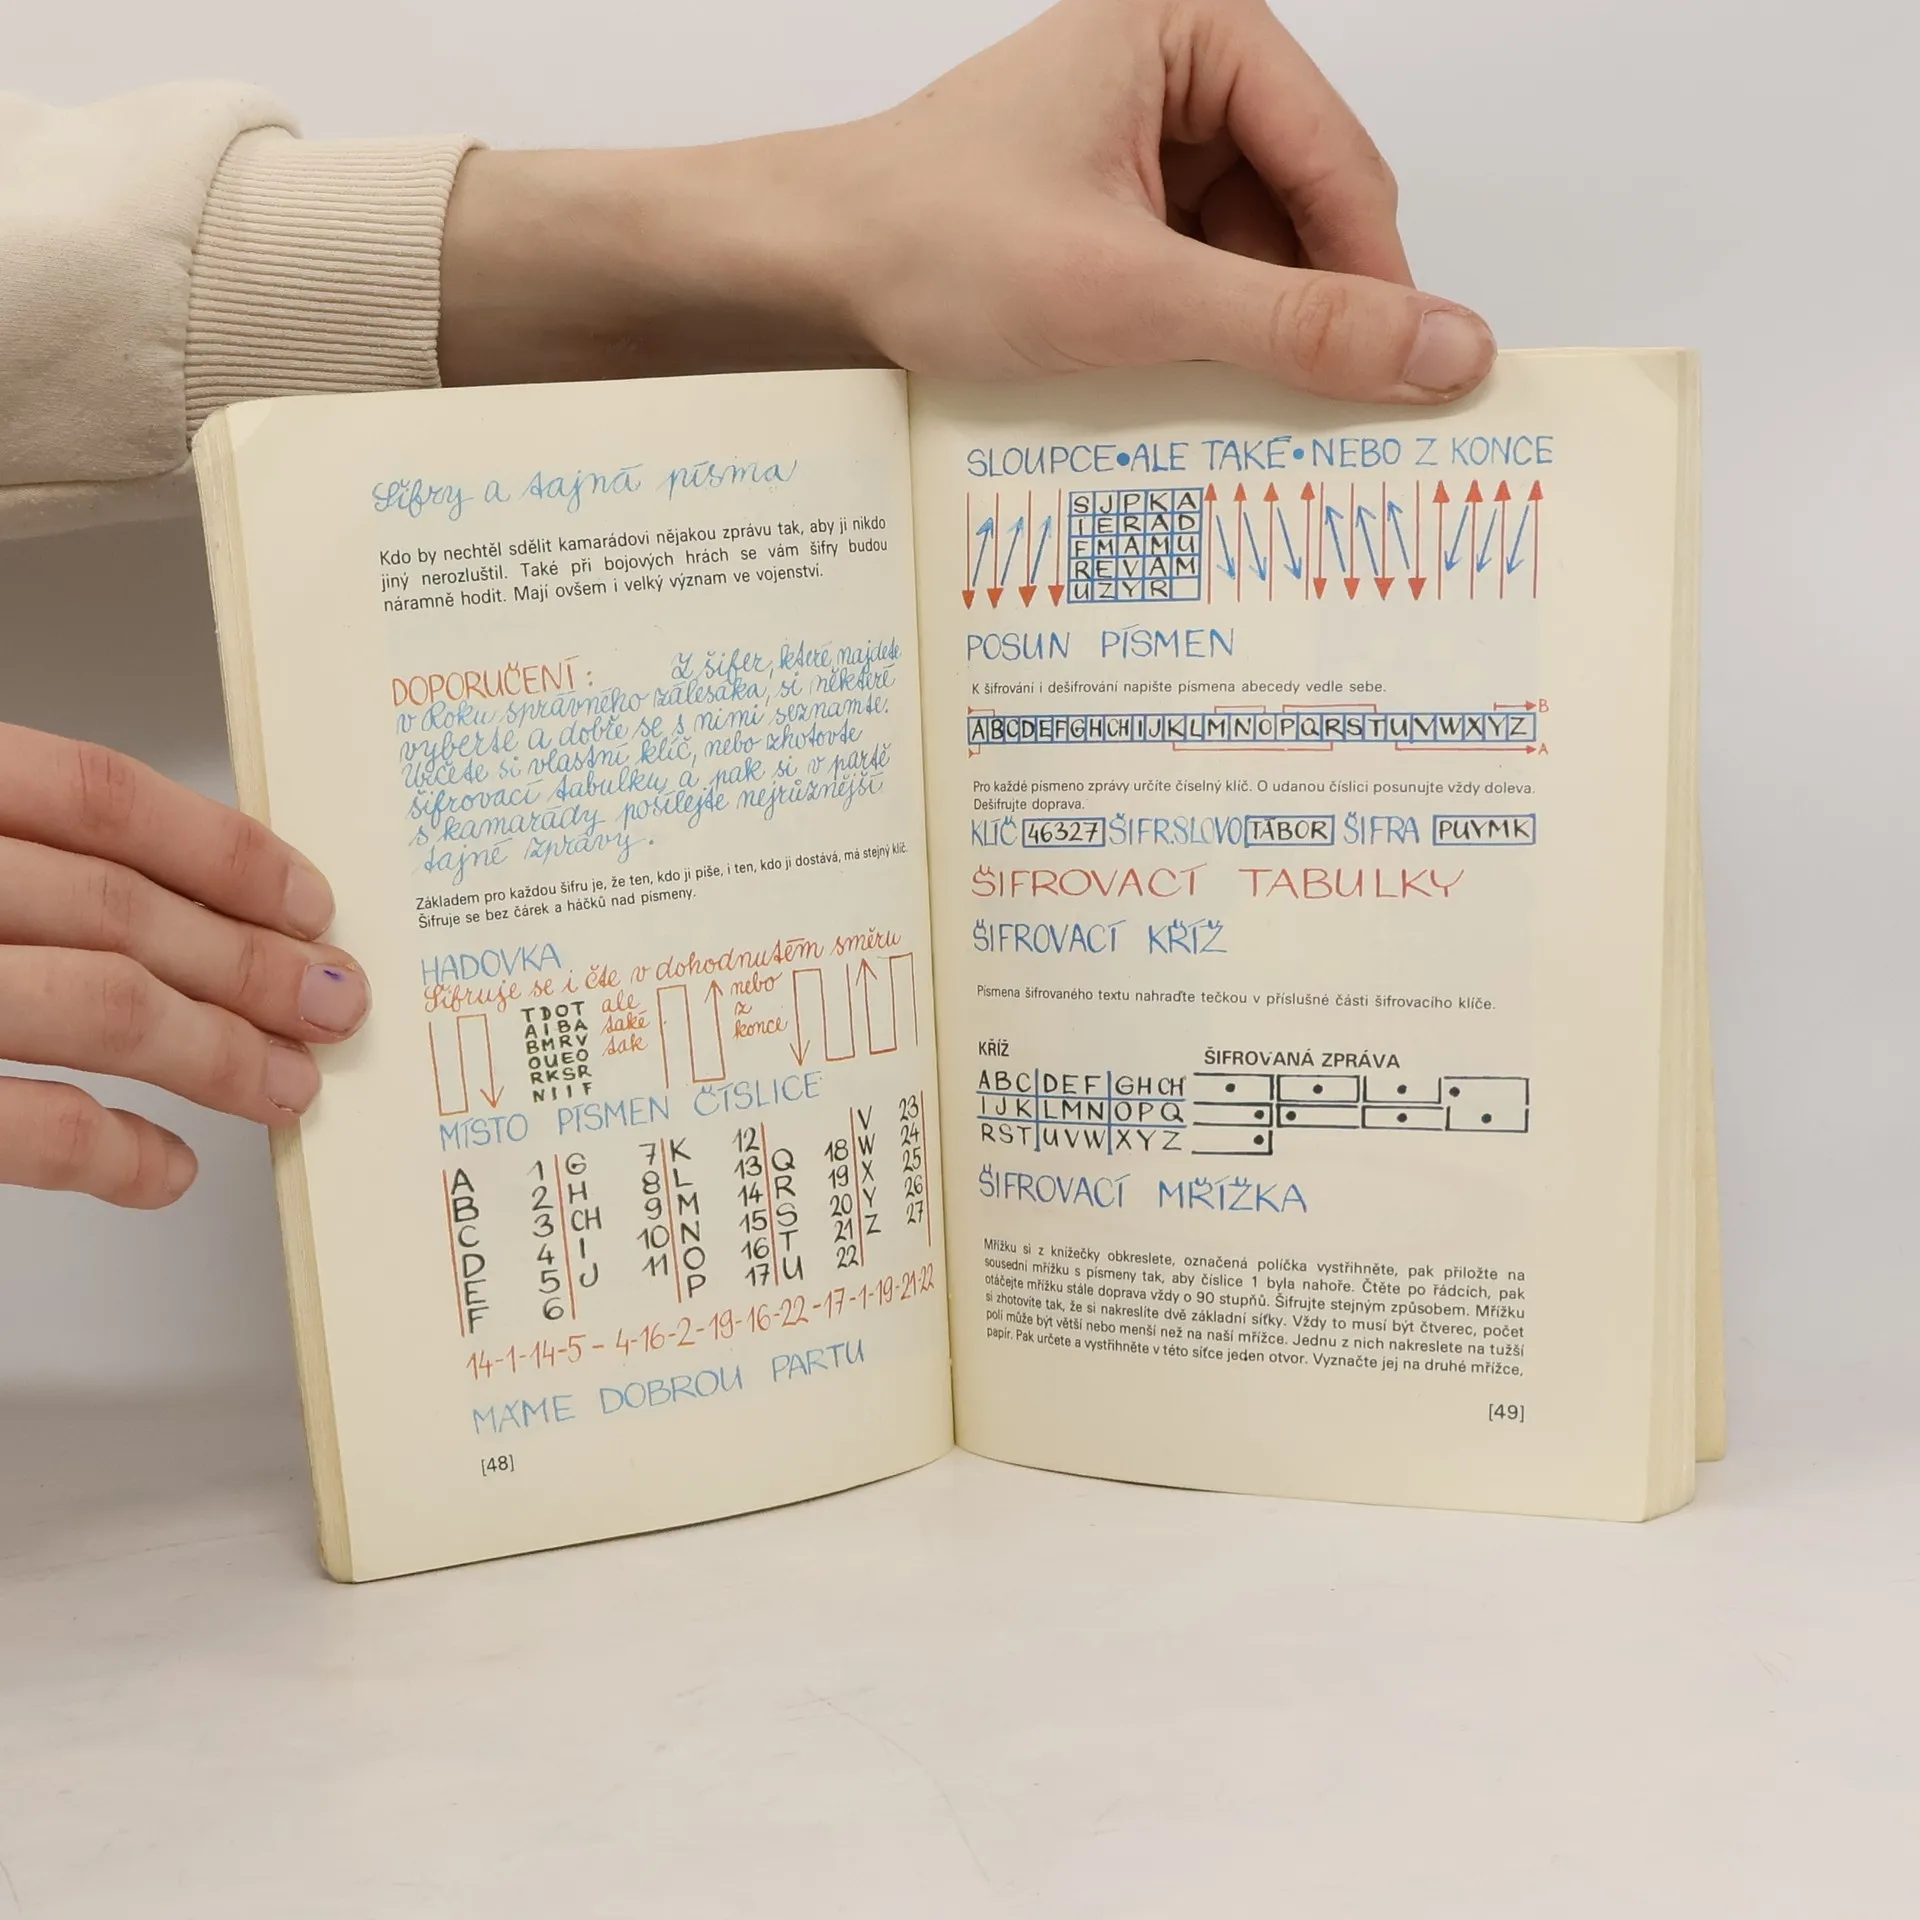 Šifry a tajná písma
Kdo by nechtěl sdělit kamarádovi nějakou zprávu tak, aby ji nikdo
jiný nerozluštil. Také při bojových hrách se vám šifry budou
náramně hodit. Mají ovšem i velký význam ve vojenství.
DOPORUČENÍ: Z šifer, které najdete
v Roku správného zálesáka, si některé
vyberte a dobře se s nimi seznamte.
Určete si vlastní klíč, nebo zhotovte
šifrovací tabulku a pak si v partě
s kamarády posílejte nejrůznější
tajné zprávy.
Základem pro každou šifru je, že ten, kdo ji píše, i ten, kdo ji dostává, má stejný klíč.
Šifruje se bez čárek a háčků nad písmeny.
HADOVKA
Šifruje se i čte v dohodnutém směru
TDOT ale nebo
AIBA také z
BMRV tak konce
OUEO
RKSR
NIIF
MÍSTO PÍSMEN ČÍSLICE
A 1 G 7 K 12 Q 18 V 23
B 2 H 8 L 13 R 19 W 24
C 3 CH 9 M 14 S 20 X 25
D 4 I 10 N 15 T 21 Y 26
E 5 J 11 O 16 U 22 Z 27
F 6 P 17
14-1-14-5 - 4-16-2-19-16-22-17-1-19-21-22
MÁME DOBROU PARTU
[48]
SLOUPCE•ALE TAKÉ•NEBO Z KONCE
SJPKA
IERAD
FMAMU
REVAM
UZYR
POSUN PÍSMEN
K šifrování i dešifrování napište písmena abecedy vedle sebe.
B
A B C D E F G H CH I J K L M N O P Q R S T U V W X Y Z
A
Pro každé písmeno zprávy určíte číselný klíč. O udanou číslici posunujte vždy doleva.
Dešifrujte doprava.
KLÍČ 46327 ŠIFR.SLOVO TÁBOR ŠIFRA PUYMK
ŠIFROVACÍ TABULKY
ŠIFROVACÍ KŘÍŽ
Písmena šifrovaného textu nahraďte tečkou v příslušné části šifrovacího klíče.
KŘÍŽ ŠIFROVANÁ ZPRÁVA
ABC DEF GHCH
IJK LMN OPQ
RST UVW XYZ
ŠIFROVACÍ MŘÍŽKA
Mřížku si z knížečky obkreslete, označená políčka vystřihněte, pak přiložte na
sousední mřížku s písmeny tak, aby číslice 1 byla nahoře. Čtěte po řádcích, pak
otáčejte mřížku stále doprava vždy o 90 stupňů. Šifrujte stejným způsobem. Mřížku
si zhotovíte tak, že si nakreslíte dvě základní síťky. Vždy to musí být čtverec, počet
polí může být větší nebo menší než na naší mřížce. Jednu z nich nakreslete na tužší
papír. Pak určete a vystřihněte v této síťce jeden otvor. Vyznačte jej na druhé mřížce,
[49]